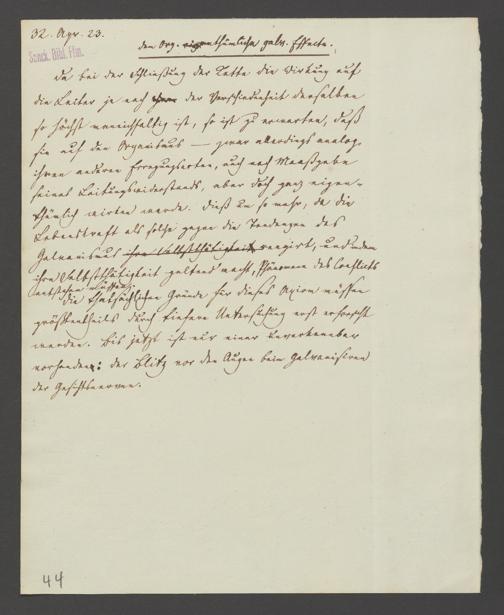 32. Apr. 23.
Senck. Bibl. Ffm.
den Org. eigenthümliche galv. Effecte.
Da bei der Schließung der Kette die Wirkung auf
die Leiter je nach der Verschiedenheit derselben
so höchst mannichfaltig ist, so ist zu erwarten, daß
sie auf den Organismus — zwar allerdings analog
ihren anderen Erregungsarten, auch nach Maaßgabe
seines Leitungswiderstands, aber doch ganz eigen-
thümlich wirken werde. Dieß um so mehr, da die
Lebenskraft als solche gegen die Tendenzen des
Galvanismus ihre Selbstthätigkeit reagirt, und indem
ihre Selbstthätigkeit geltend macht, Phänomene des Conflicts
entstehen müssen.
Die thatsächlichen Gründe für dieses Axiom müssen
größtentheils durch tiefere Untersuchung erst erforscht
werden. Bis jetzt ist nur einer unverkennbar
vorhanden: der Blitz vor den Augen beim Galvanisiren
der Gesichtsnerven.
44